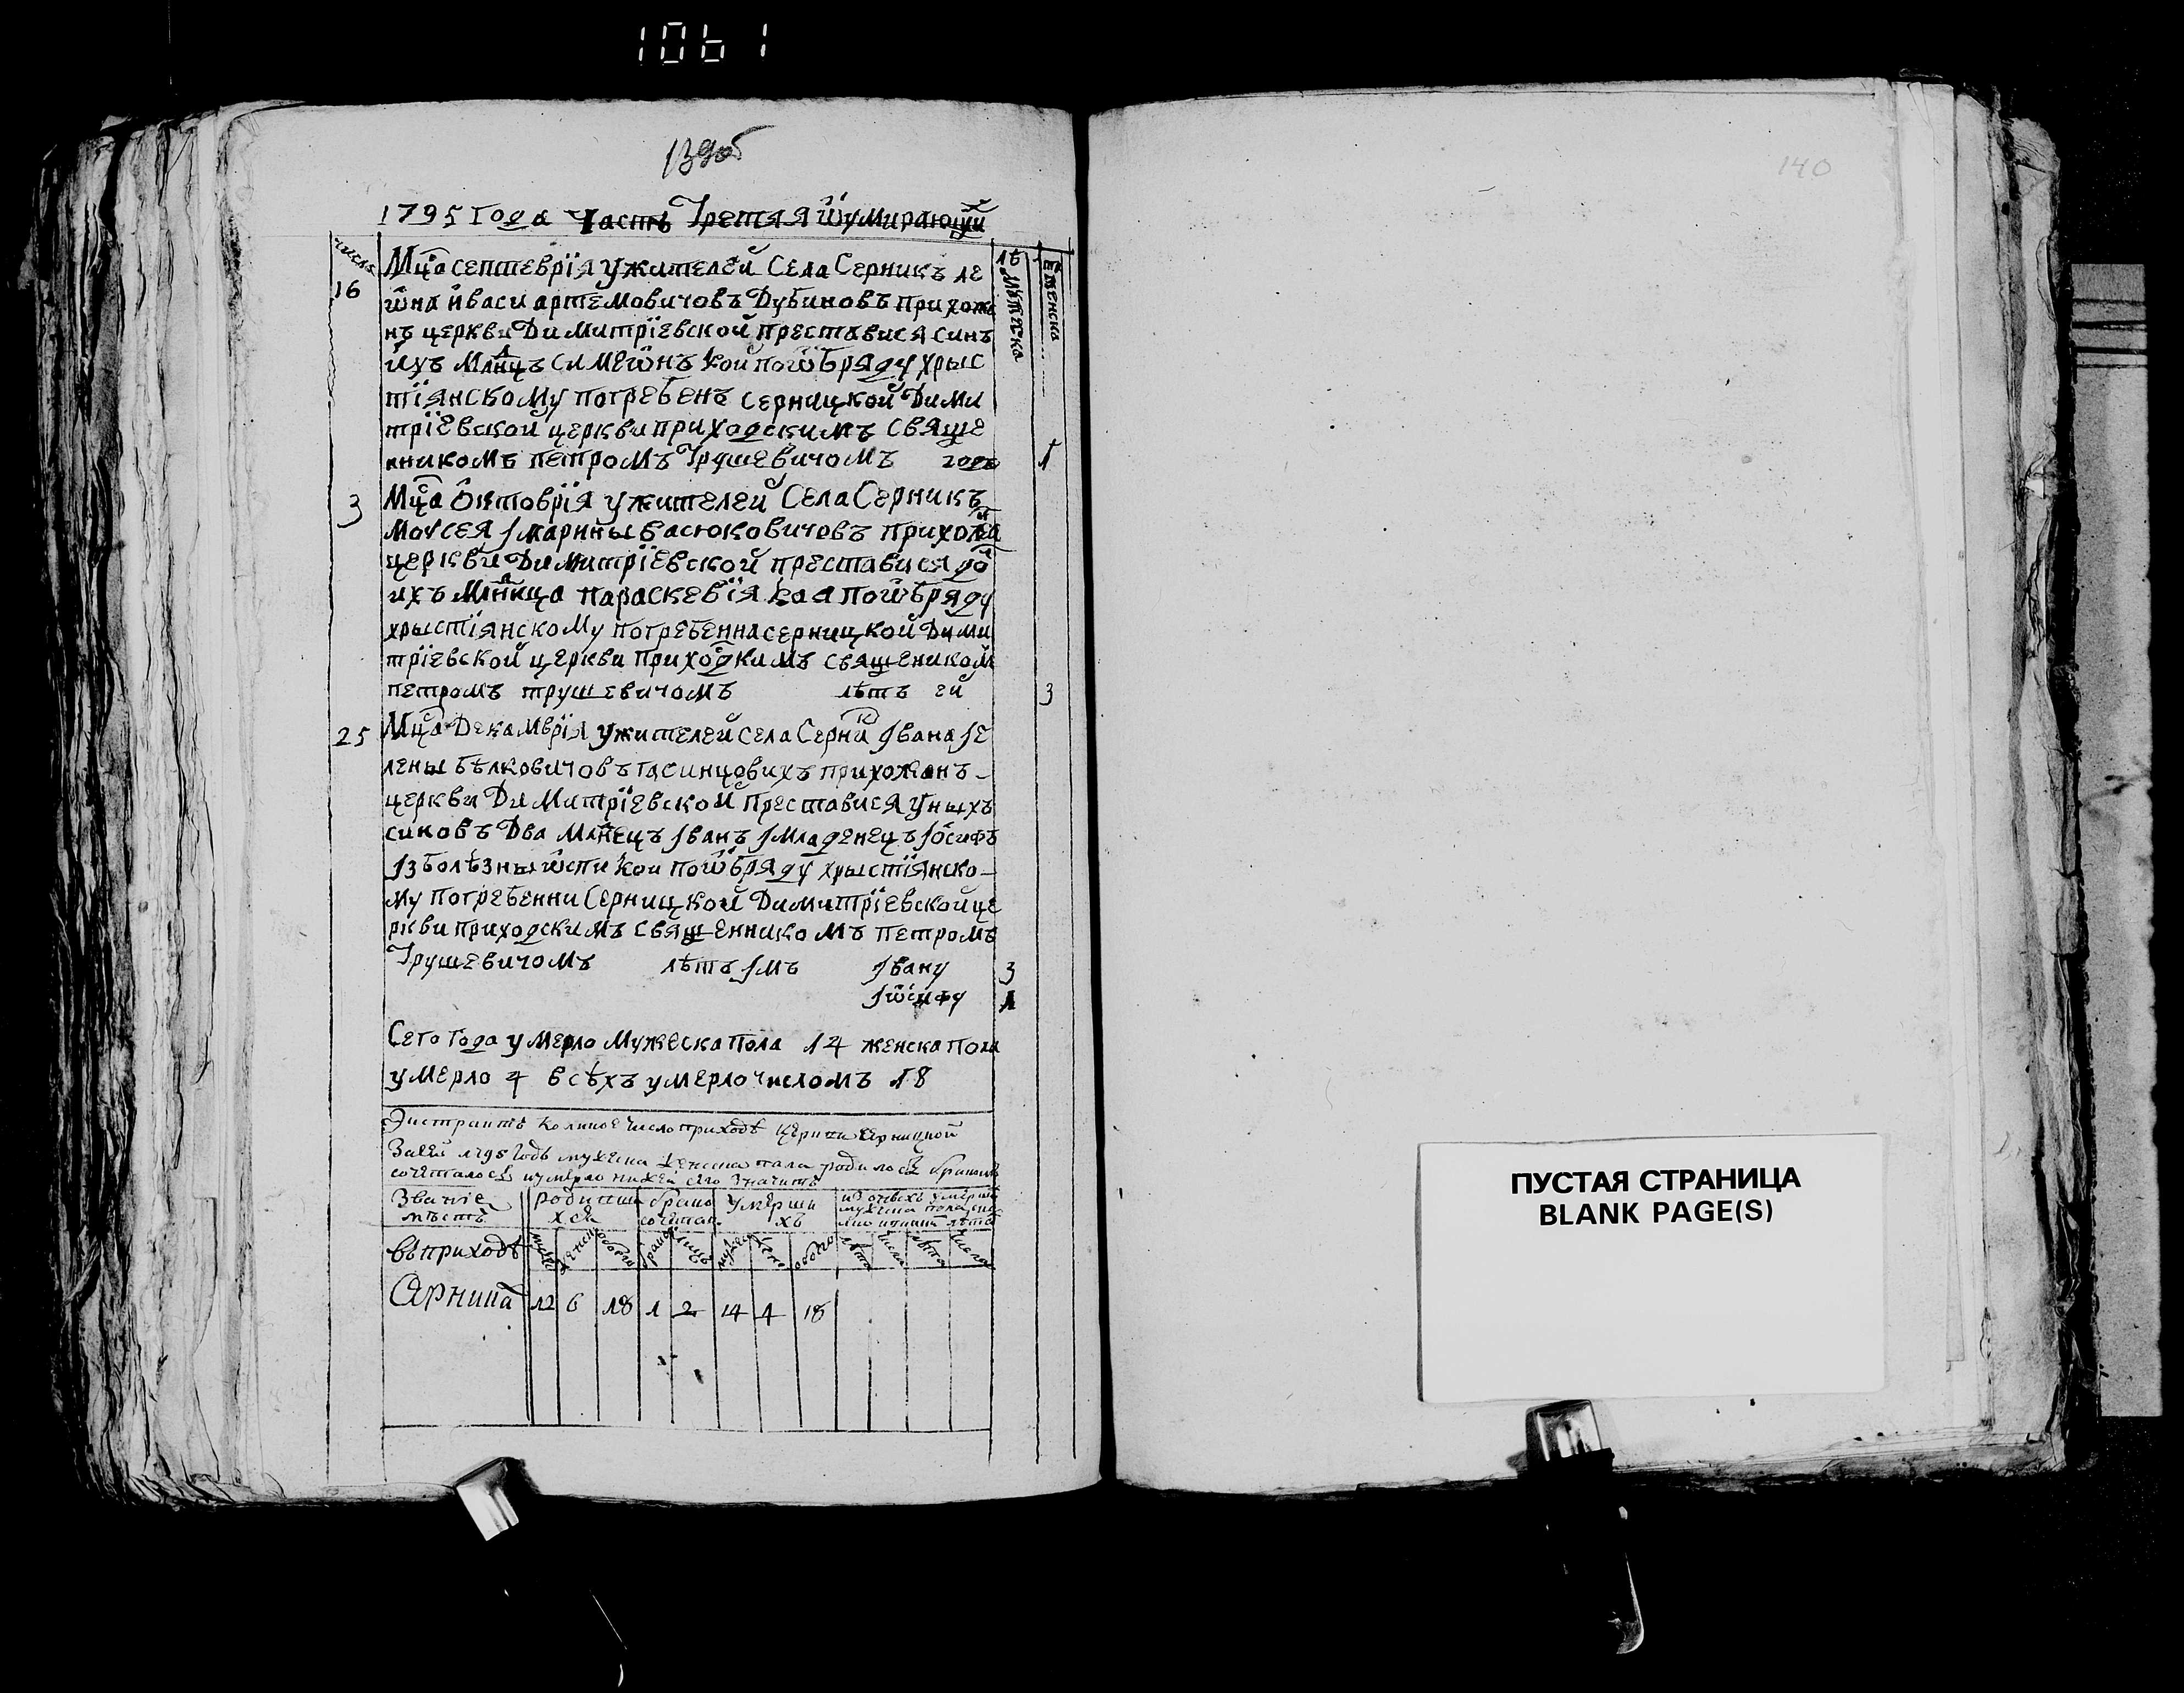 1061
139об
140
1795 Года Часть Третяя ѿ умирающихъ
числа
лѣ мужеска
женска
16 Мца септеврїя у жителей Села Серникъ Ле
ѡна и Васи артемовичовъ Дубиновъ прихожа
нъ церкви Димитрїевской преставися синъ
ихъ Млнцъ Симеѡнъ кой по ѡбряду хрыс
тїянскому погребенъ серницкой Дими
трїевской церкви приходскимъ свяще
нникомъ петромъ Трушевичомъ годъ 1
3 Мца Октоврїя у жителей Села Серникъ
Моѵсея i марины васюковичовъ прихожанъ
церкви Димитрїевской преставися до
ихъ Млница параскевїя коя по ѡбряду
хрыстїянскому погребенна серницкой Дими
трїевской церкви приходскимъ священиком
петромъ трушевичомъ лѣтъ ей 3
25 Мца Декамврїя у жителей села Серник Iвана i Е
лены Бѣлковичовъ гасинцовихъ прихожанъ
церкви Димитрїевской преставися у ныхъ
синовъ Два Млнецъ Iванъ i Младенецъ Iосифъ
iз болѣзны ѡспи кои по ѡбряду хрыстїянско
му погребенни Серницкой Димитрїевской це
ркви приходскимъ священникомъ петромъ
Трушевичомъ лѣтъ iмъ Iвану 3
Iѡсифу 1
Сего года умерло Мужеска пола 14 женска пола
умерло 4 всѣхъ умерло числомъ 18
Экстрактъ коликое число приходѣ церкви Серницкой
1795 годъ мужеска женска пола родилося браком
сочеталось и умерло ниже сего значитъ
Званїе мѣстъ
родившихся
брако сочетан
умерши хъ
въ приходѣ
мужес женск обоего браков лицъ мужес женс обоего лѣта числа лѣта числа
Серникъ 12 6 18 1 2 14 4 18
ПУСТАЯ СТРАНИЦА
BLANK PAGE(S)